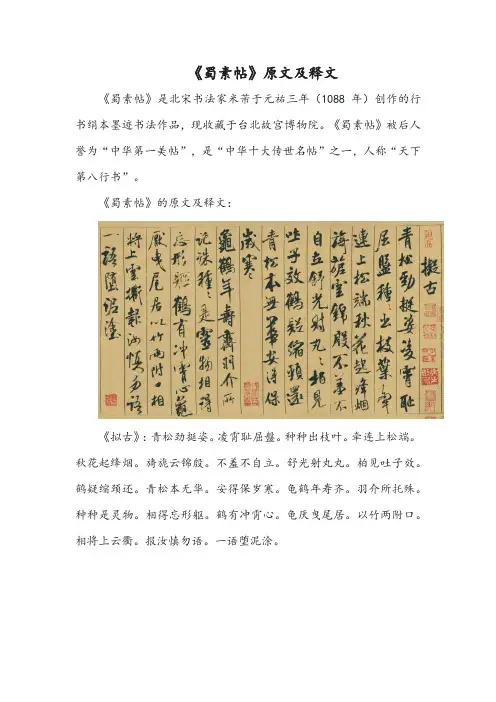 《蜀素帖》原文及释文
《蜀素帖》是北宋书法家米芾于元祐三年（1088 年）创作的行
书绢本墨迹书法作品，现收藏于台北故宫博物院。《蜀素帖》被后人
誉为“中华第一美帖”，是“中华十大传世名帖”之一，人称“天下
第八行书”。
《蜀素帖》的原文及释文：
擬古
青松勁挺姿凌霄恥
屈盤種々出枝葉牽
連上松端秋花起絳烟
旖旎雲錦殷不羞不
自立舒光射丸々柏見
吐子效鶴疑縮頸還
青松本無華安得保
歲寒
龜鶴年壽齊羽介所
託殊種々是靈物相得
忘形軀鶴有沖霄心龜
厭曳尾居以竹兩附口相
將上雲衢報汝慎勿語
一語墮泥塗
《拟古》：青松劲挺姿。凌宵耻屈盤。种种出枝叶。牵连上松端。
秋花起绛烟。旖旎云锦殷。不羞不自立。舒光射丸丸。柏见吐子效。
鹤疑缩颈还。青松本无华。安得保岁寒。龟鹤年寿齐。羽介所托殊。
种种是灵物。相得忘形躯。鹤有冲宵心。龟厌曳尾居。以竹两附口。
相将上云衢。报汝慎勿语。一语堕泥涂。